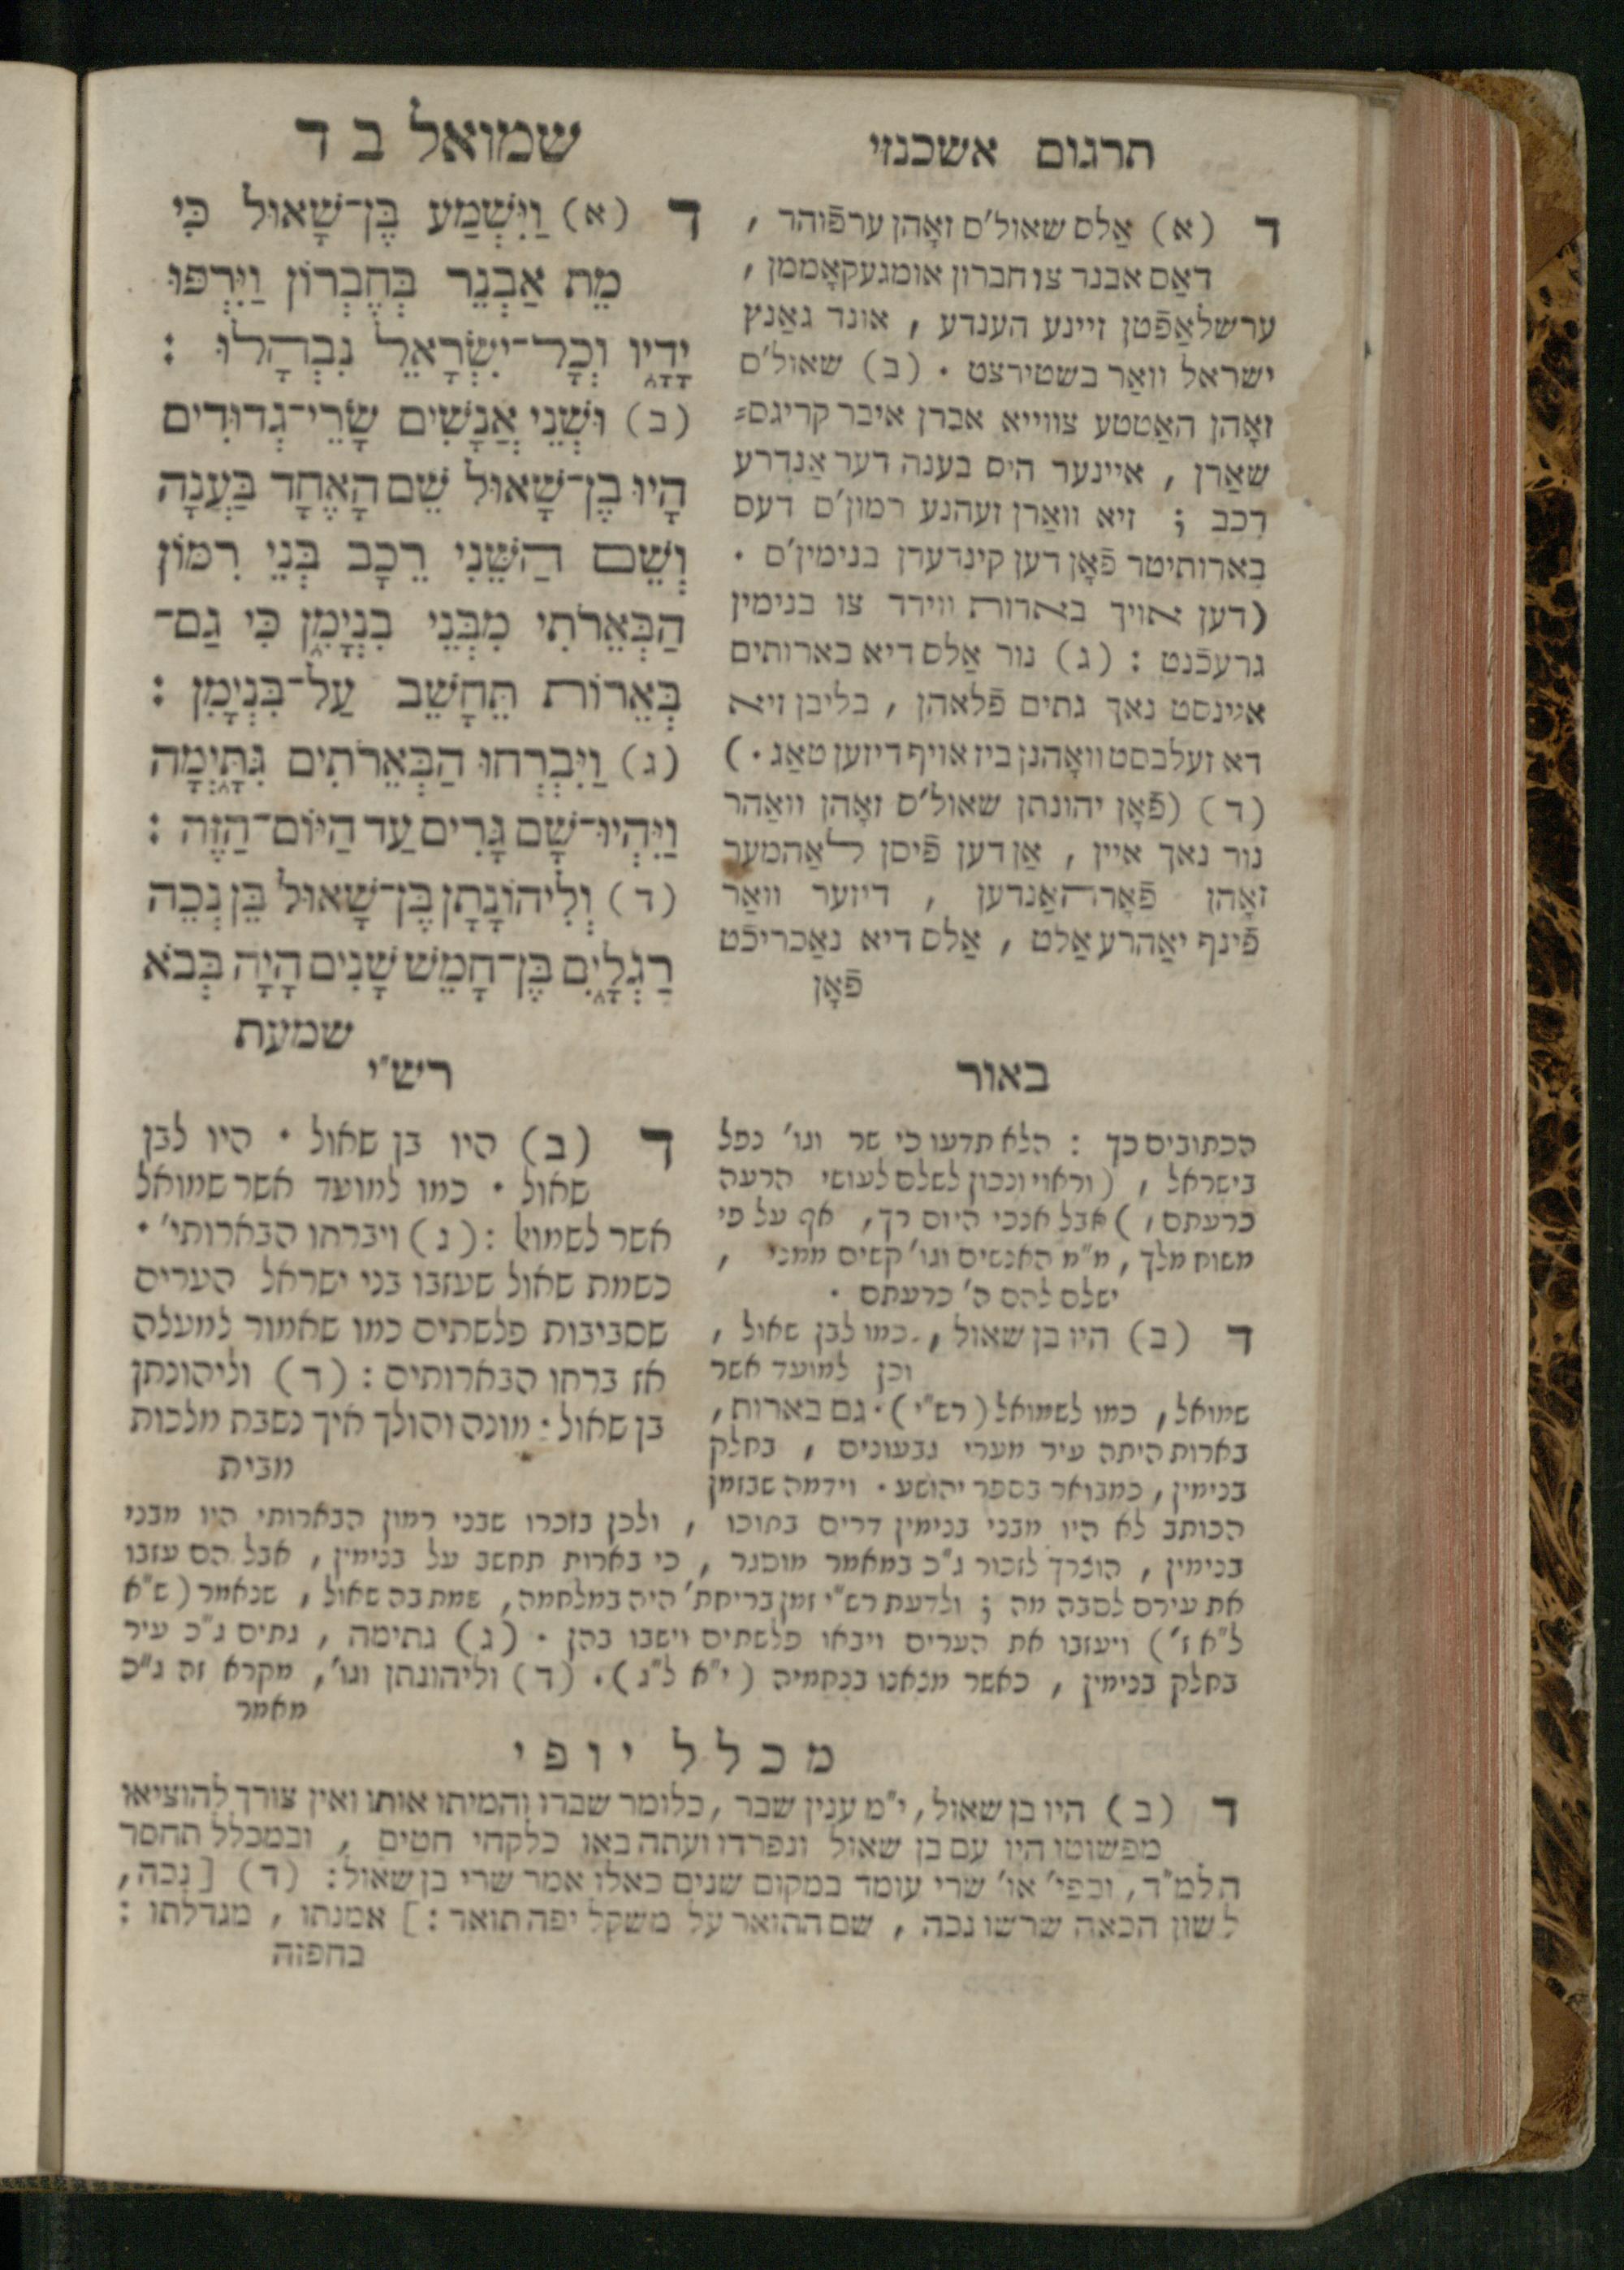 שמואל ב ד
ד (א) וַיִּשְׁמַע בֶּן־שָׁאוּל כִּי
מֵת אַבְנֵר בְּחֶבְרוֹן וַיִּרְפּוּ
יָדָיו וְכָל־יִשְׂרָאֵל נִבְהָלוּ :
(ב) וּשְׁנֵי אֲנָשִׁים שָׂרֵי־גְדוּדִים
הָיוּ בֶן־שָׁאוּל שֵׁם הָאֶחָד בַּעֲנָה
וְשֵׁם הַשֵּׁנִי רֵכָב בְּנֵי רִמּוֹן
הַבְּאֵרֹתִי מִבְּנֵי בִנְיָמִן כִּי גַם־
בְּאֵרוֹת תֵּחָשֵׁב עַל־בִּנְיָמִן :
(ג) וַיִּבְרְחוּ הַבְּאֵרֹתִים גִּתָּיְמָה
וַיִּהְיוּ־שָׁם גָּרִים עַד הַיּוֹם־הַזֶּה :
(ד) וְלִיהוֹנָתָן בֶּן־שָׁאוּל בֵּן נְכֵה
רַגְלָיִם בֶּן־חָמֵשׁ שָׁנִים הָיָה בְּבֹא
שמעת
תרגום אשכנזי
ד (א) אַלס שאול'ס זאָהן ערפֿוהר ,
דאַס אבנר צו חברון אומגעקאָממן ,
ערשלאַפֿטן זיינע הענדע , אונד גאַנץ
ישראל וואַר בשטירצט . (ב) שאול'ס
זאָהן האַטטע צווייא אברן איבר קריגס=
שאַרן , איינער היס בענה דער אַנדרע
רכב ; זיא וואַרן זעהנע רמון'ס דעס
בארותיטר פֿאָן דען קינדערן בנימין'ס .
(דען אויך בארות ווירד צו בנימין
גרעכֿנט : (ג) נור אַלס דיא בארותים
איינסט נאך גתים פֿלאהן , בליבן זיא
דא זעלבסט וואָהנן ביז אויף דיזען טאַג .)
(ד) (פֿאָן יהונתן שאול'ס זאָהן וואַהר
נור נאך איין , אַן דען פֿיסן לאַהמער
זאָהן פֿאָרהאַנדען , דיזער וואַר
פֿינף יאַהרע אַלט , אַלס דיא נאַכריכֿט
פֿאָן
רש"י
ד (ב) היו בן שאול . היו לבן
שאול . כמו למועד אשר שמואל
אשר לשמואל : (ג) ויברחו הבארותי' .
כשמת שאול שעזבו בני ישראל הערים
שסביבות פלשתים כמו שאמור למעלה
אז ברחו הבארותים : (ד) וליהונתן
בן שאול . מונה והולך איך נשבת מלכות
מבית
באור
הכתובים כך : הלא תדעו כי שר וגו' נפל
בישראל , (וראוי ונכון לשלם לעושי הרעה
כרעתם ,) אבל אנכי היום רך , אף על פי
משוח מלך , מ"מ האנשים וגו' קשים ממני ,
ישלם להם ה' כרעתם .
ד (ב) היו בן שאול , כמו לבן שאול ,
וכן למועד אשר
שמואל , כמו לשמואל (רש"י) . גם בארות ,
בארות היתה עיר מערי גבעונים , בחלק
בנימין , כמבואר בספר יהושע . וידמה שבזמן
הכותב לא היו מבני בנימין דרים בתוכו , ולכן בזכרו שבני רמון הבארותי היו מבני
בנימין , הוצרך לזכור ג"כ במאמר מוסגר , כי בארות תחשב על בנימין , אבל הם עזבו
את עירם לסבה מה ; ולדעת רש"י זמן בריחת' היה במלחמה , שמת בה שאול , שנאמר (ש"א
ל"א ז') ויעזבו את הערים ויבאו פלשתים וישבו בהן . (ג) גתימה , גתים ג"כ עיר
בחלק בנימין , כאשר מצאנו בנחמיה (י"א ל"ג) . (ד) וליהונתן וגו' , מקרא זה ג"כ
מאמר
מכלל יופי
ד (ב) היו בן שאול , י"מ ענין שבר , כלומר שברו והמיתו אותו ואין צורך להוציאו
מפשוטו היו עם בן שאול ונפרדו ועתה באו כלקחי חטים , ובמכלל תחסר
הלמ"ד , ובפי' או' שרי עומד במקום שנים כאלו אמר שרי בן שאול : (ד) [נכה ,
לשון הכאה שרשו נכה , שם התואר על משקל יפה תואר :] אמנתו , מגדלתו :
בחפזה